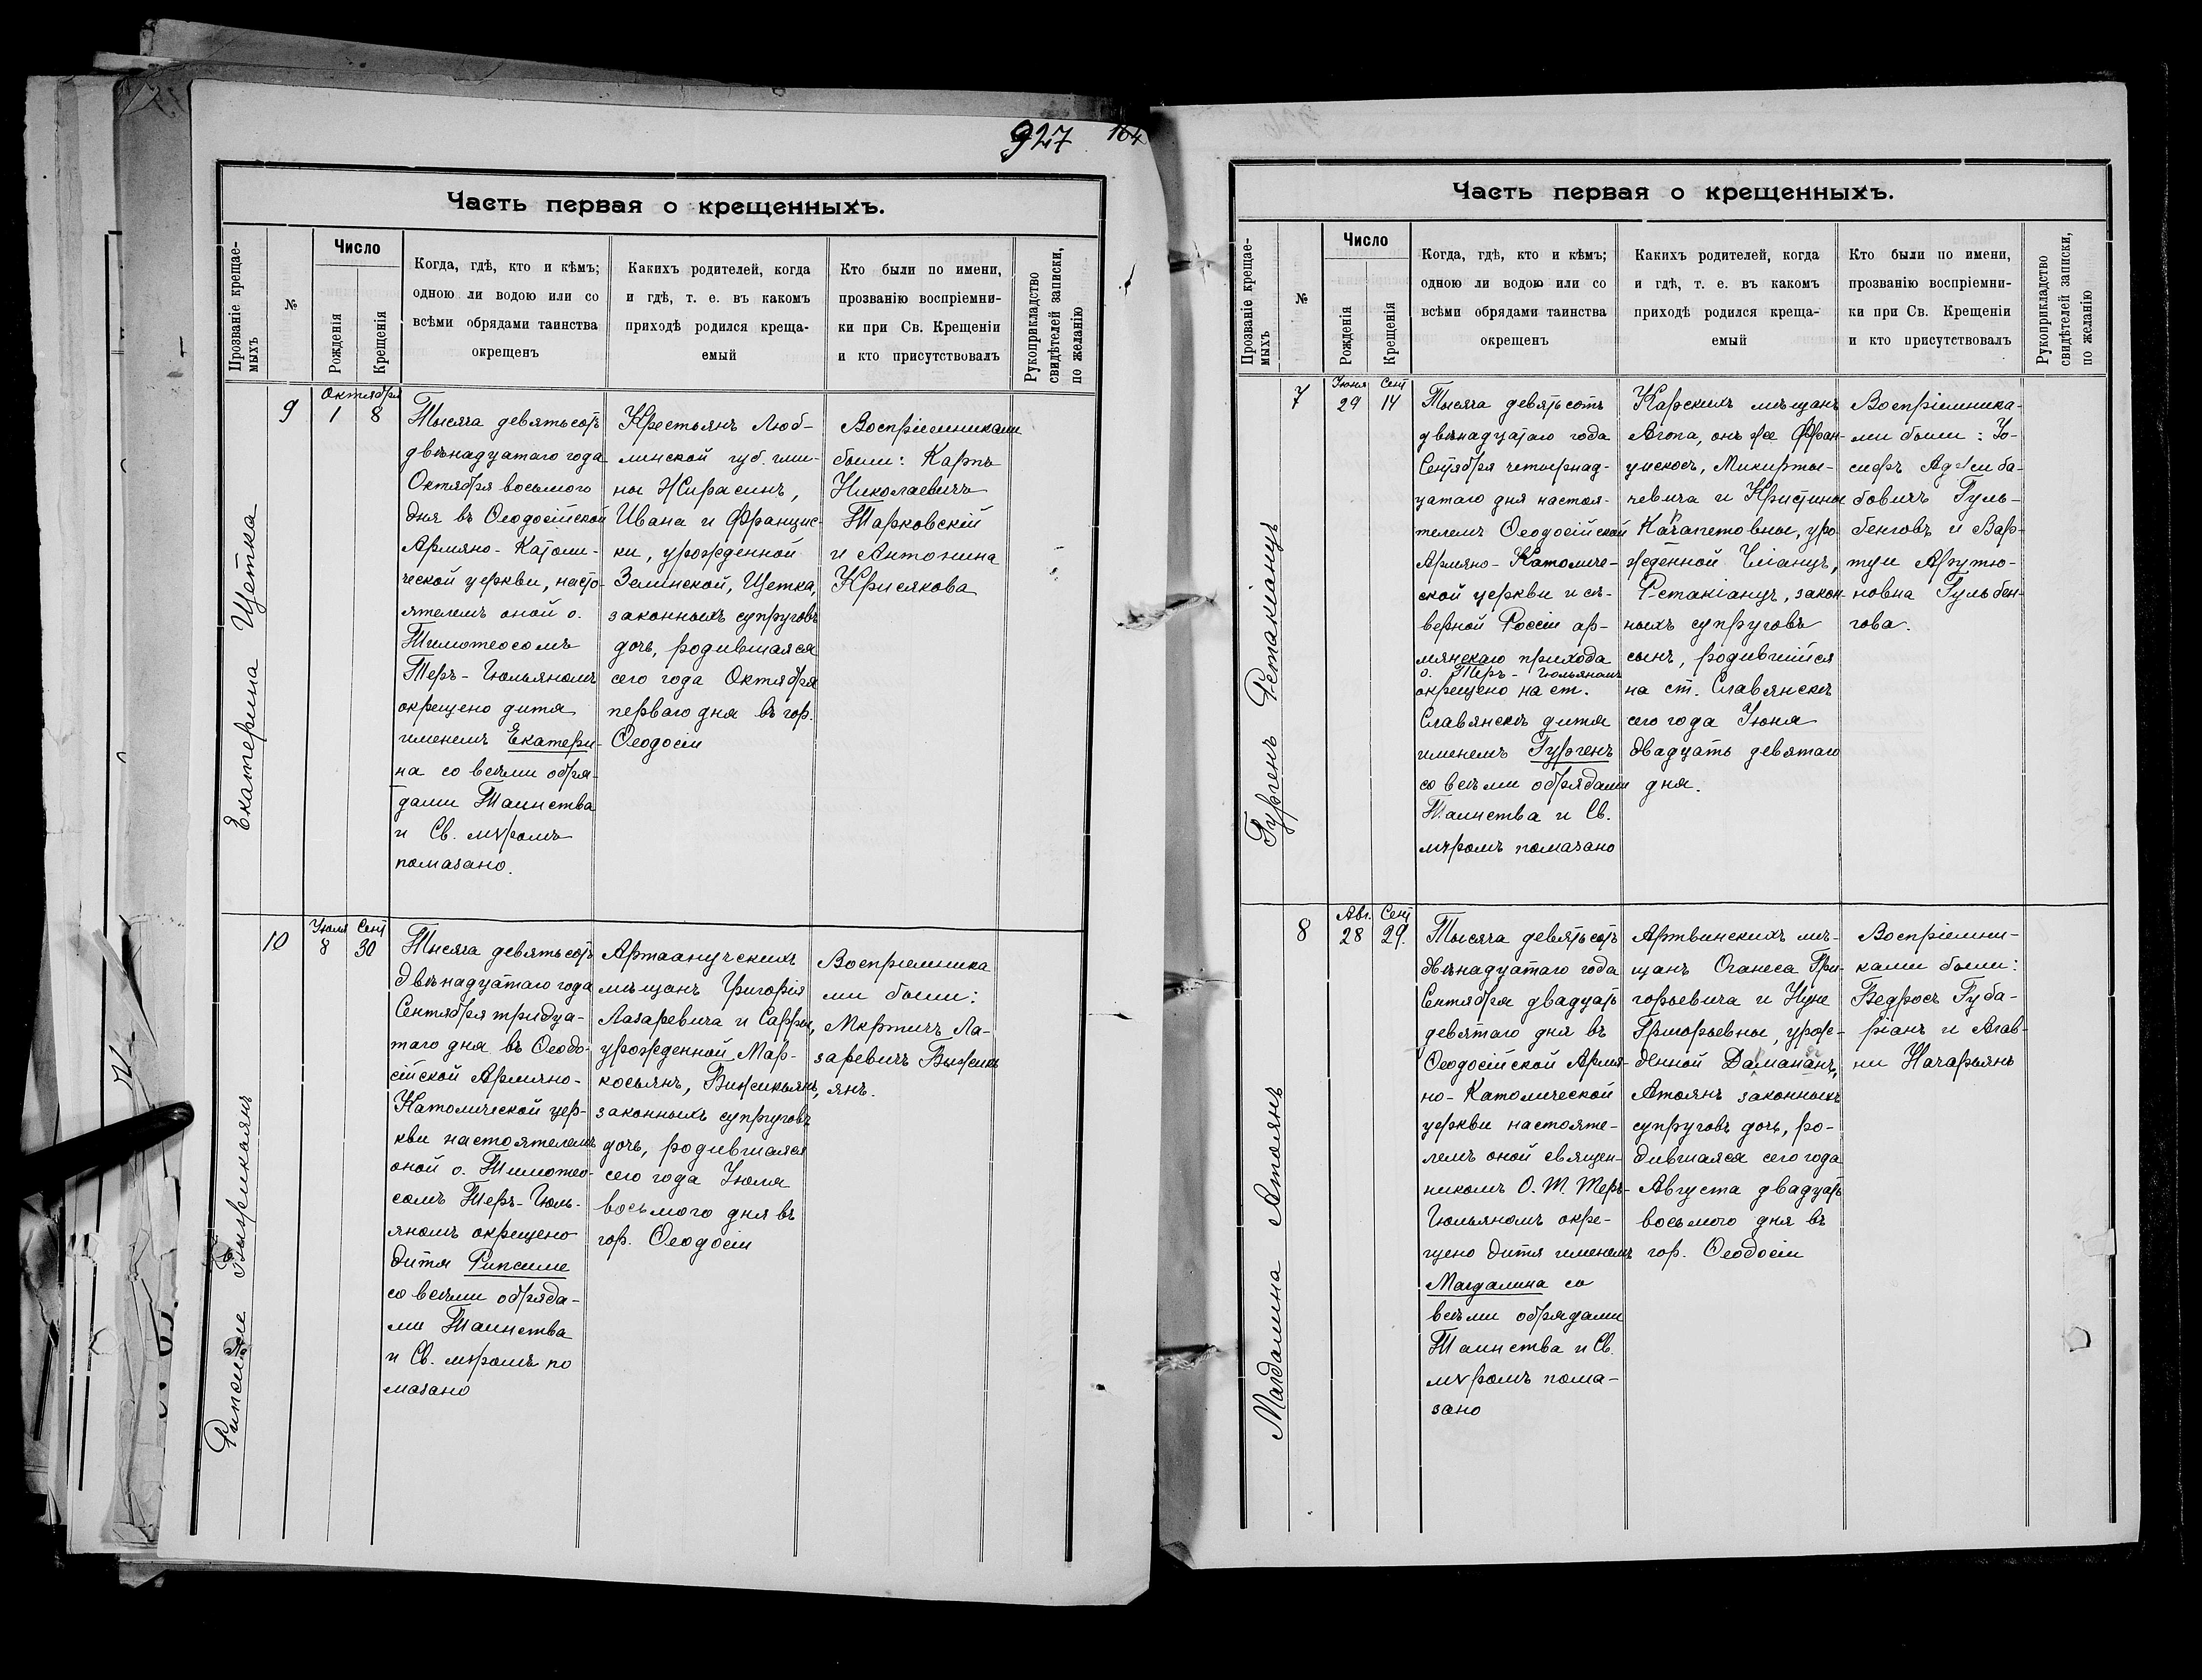 927 164
Часть первая о крещенныхъ.
Прозваніе крещае-
мыхъ
№
Число
Рожденія
Крещенія
Когда, гдѣ, кто и кѣмъ;
одною ли водою или со
всѣми обрядами таинства
окрещенъ
Какихъ родителей, когда
и гдѣ, т. е. въ какомъ
приходѣ родился креща-
емый
Кто были по имени,
прозванію воспріемни-
ки при Св. Крещеніи
и кто присутствовалъ
Рукоприкладство
свидѣтелей записки,
по желанію
Екатерина Щетка
9
Октября
1 8
Тысяча девятьсотъ
двѣнадцатаго года
Октября восьмого
дня въ Ѳеодосійской
Армяно-Католи-
ческой церкви, насто-
ятелемъ оной о.
Тимотеосомъ
Теръ-Гюльяномъ
окрещено дитя
именемъ Екатери-
на со всѣми обря-
дами Таинства
и Св. мѵромъ
помазано.
Крестьянъ Люб-
линской губ. гми-
ны Жирасинъ,
Ивана и Францис-
ки, урожденной
Зелинской, Щетка,
законныхъ супруговъ
дочь, родившаяся
сего года Октября
перваго дня въ гор.
Ѳеодосіи
Воспріемниками
были: Карпъ
Николаевичъ
Тарковскій
и Антонина
Крисякова
Рипсиме Бижикоянъ
10
Іюля Сент
8 30
Тысяча девятьсотъ
двѣнадцатаго года
Сентября тридца-
таго дня въ Ѳеодо-
сійской Армяно-
Католической цер-
кви настоятелемъ
оной о. Тимотео-
сомъ Теръ-Гюль-
яномъ окрещено
дитя Рипсиме
со всѣми обряда-
ми Таинства
и Св. мѵромъ по
мазано
Артаанучскихъ
мѣщанъ Григорія
Лазаревича и Сарры,
урожденной Мар-
косьянъ, Бижикьянъ,
законныхъ супруговъ
дочь, родившаяся
сего года Іюля
восьмого дня въ
гор. Ѳеодосіи
Воспріемника
ми были:
Мкртичъ Ла-
заревичъ Бижик
янъ.
Часть первая о крещенныхъ.
Прозваніе крещае-
мыхъ
№
Число
Рожденія
Крещенія
Когда, гдѣ, кто и кѣмъ;
одною ли водою или со
всѣми обрядами таинства
окрещенъ
Какихъ родителей, когда
и гдѣ, т. е. въ какомъ
приходѣ родился креща-
емый
Кто были по имени,
прозванію воспріемни-
ки при Св. Крещеніи
и кто присутствовалъ
Рукоприкладство
свидѣтелей записки,
по желанію
Гургенъ Рстакіанцъ
7
Іюня Сент
29 14
Тысяча девятьсотъ
двѣнадцатаго года
Сентября четырнад-
цатаго дня настоя-
телемъ Ѳеодосійской
Армяно-Католиче-
ской церкви и сѣ-
верной Россіи ар-
мянскаго прихода
о. Теръ-Гюльяномъ
окрещено на ст.
Славянскъ дитя
именемъ Гургенъ
со всѣми обрядами
Таинства и Св.
мѵромъ помазано
Карскихъ мѣщанъ
Агопа, онъ же Фран-
цискосъ, Микирты-
чевича и Кристины
Карапетовны, уро-
жденной Чліанцъ,
Рстакіанцъ, закон-
ныхъ супруговъ
сынъ, родившійся
на ст. Славянскъ
сего года Іюня
двадцать девятаго
дня.
Воспріемника-
ми были: Іо-
сифъ Аджиба-
бовичъ Гуль-
бенговъ и Вар-
туи Арутю-
новна Гульбен-
гова.
Магдалина Атоянъ
8
Авг. Сент
28 29.
Тысяча девятьсотъ
двѣнадцатаго года
Сентября двадцать
девятаго дня въ
Ѳеодосійской Армя-
но-Католической
церкви настояте-
лемъ оной священ-
никомъ О. Т. Теръ-
Гюльяномъ окре-
щено дитя именемъ
Магдалина со
всѣми обрядами
Таинства и Св.
мѵромъ пома-
зано
Артвинскихъ мѣ-
щанъ Оганеса Гри-
горьевича и Нуне
Григорьевны, урож-
денной Даманянъ,
Атоянъ законныхъ
супруговъ дочь, ро-
дившаяся сего года
Августа двадцать
восьмого дня въ
гор. Ѳеодосіи
Воспріемни-
ками были:
Бедросъ Губа-
ріанъ и Агав-
ни Начарьянъ